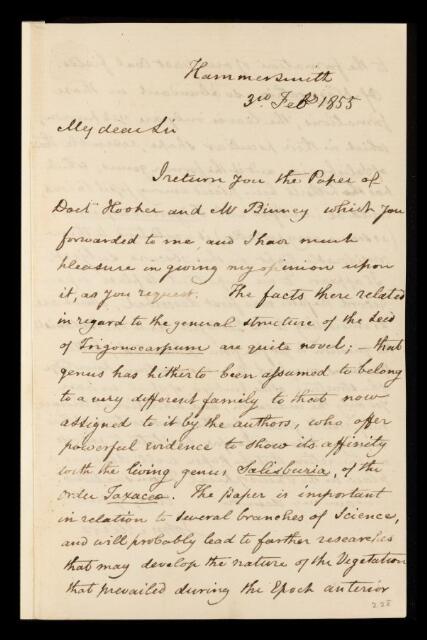 Hammersmith
3rd Feby 1855
My dear Sir
I return you the Paper of
Doctr Hooker and Mr Binney which you
forwarded to me, and I have much
pleasure in giving my opinion upon
it, as you request. The facts there related
in regard to the general structure of the seed
of Trigonocarpum are quite novel; – that
genus has hitherto been assumed to belong
to a very different family to that now
assigned to it by the authors, who offer
powerful evidence to show its affinity
with the living genus Salisburia, of the
order Taxaceæ. The paper is important
in relation to several branches of Science,
and will probably lead to farther researches
that may develop the nature of the Vegetation
that prevailed during the Epoch anterior
228